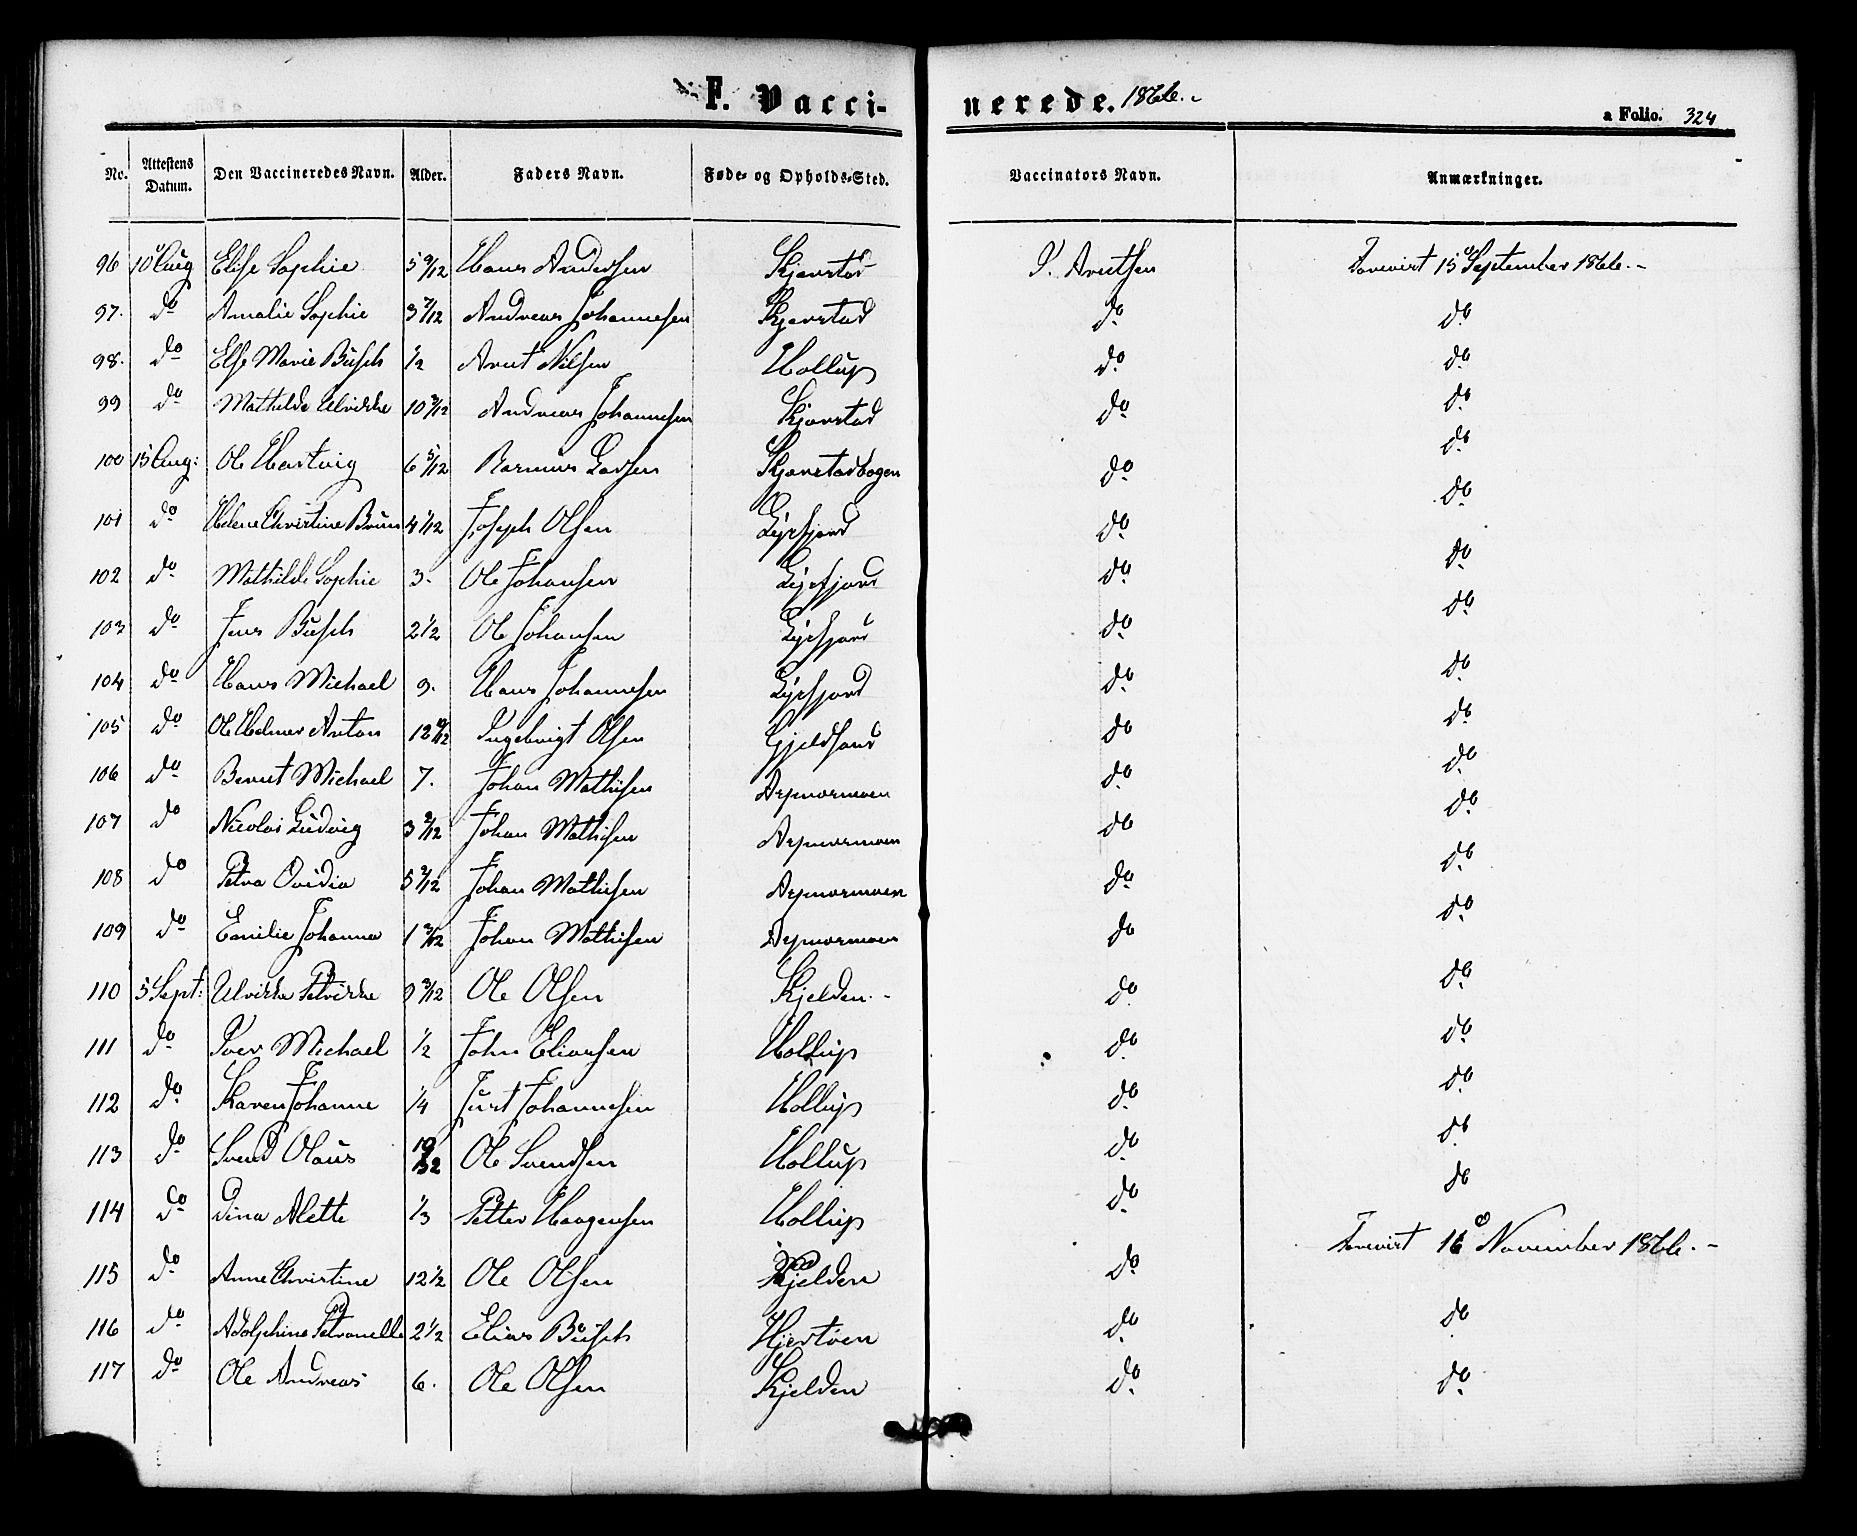 F. Vaccinerede. 1866.
a Folio. 324
No. Attestens Datum. Den Vaccineredes Navn. Alder. Faders Navn. Føde- og Opholds-Sted. Vaccinators Navn. Anmærkninger.
96 10 Aug Elise Sophie 5 9/12 Hans Andersen Skjerstad Arntsen 15 September 1866.-
97. do Amalie Sophie 3 7/12 Andreas Johannesen Skjerstad do do
98. do Else Marie Busch 1/2 Arnt Nilsen Hollup do do
99 do Mathilde Ulrikke 10 3/12 Andreas Johannesen Skjerstad do do
100 15 Aug: Ole Hartvig 6 5/12 Rasmus Larsen Skjerstadbogen do do
101 do Helene Christine Bruun 4 1/12 Joseph Olsen do do
102 do Mathilde Sophie 3. Ole Johansen do do
103 do Jens Busch 2 1/2 Ole Johansen do do
104 do Hans Michael 9. Hans Johannesen do do
105 do Ole Helmer Anton 12 Ingebrigt Olsen Gjeldsand do do
106 do Bernt Michael 7. Johan Mathisen do do
107 do Nicolai Ludvig 3 2/12 Johan Mathisen do do
108 do Petra Ovidia 5 7/12 Johan Mathisen do do
109 do Emilie Johanna 1 3/12 Johan Mathisen do do
110 5 Sept: Ulrikke Petrikke 9 3/12 Ole Olsen Kjelden.- do do
111 do Iver Michael 1/2 John Eliassen Hollup do do
112 do Karen Johanne 1/4 Kurt Johannesen Hollup do do
113 do Svend Olaus 10/12 Ole Svendsen Hollup do do
114 do Dina Alette 1/3 Petter Haagensen Hollup do do
115 do Anne Christine 12 1/2 Ole Olsen Kjelden do 16 November 1866.-
116 do Adolphine Petronelle 2 1/2 Elias Busch Hjertøen do do
117 do Ole Andreas 6. Ole Olsen Kjelden do do